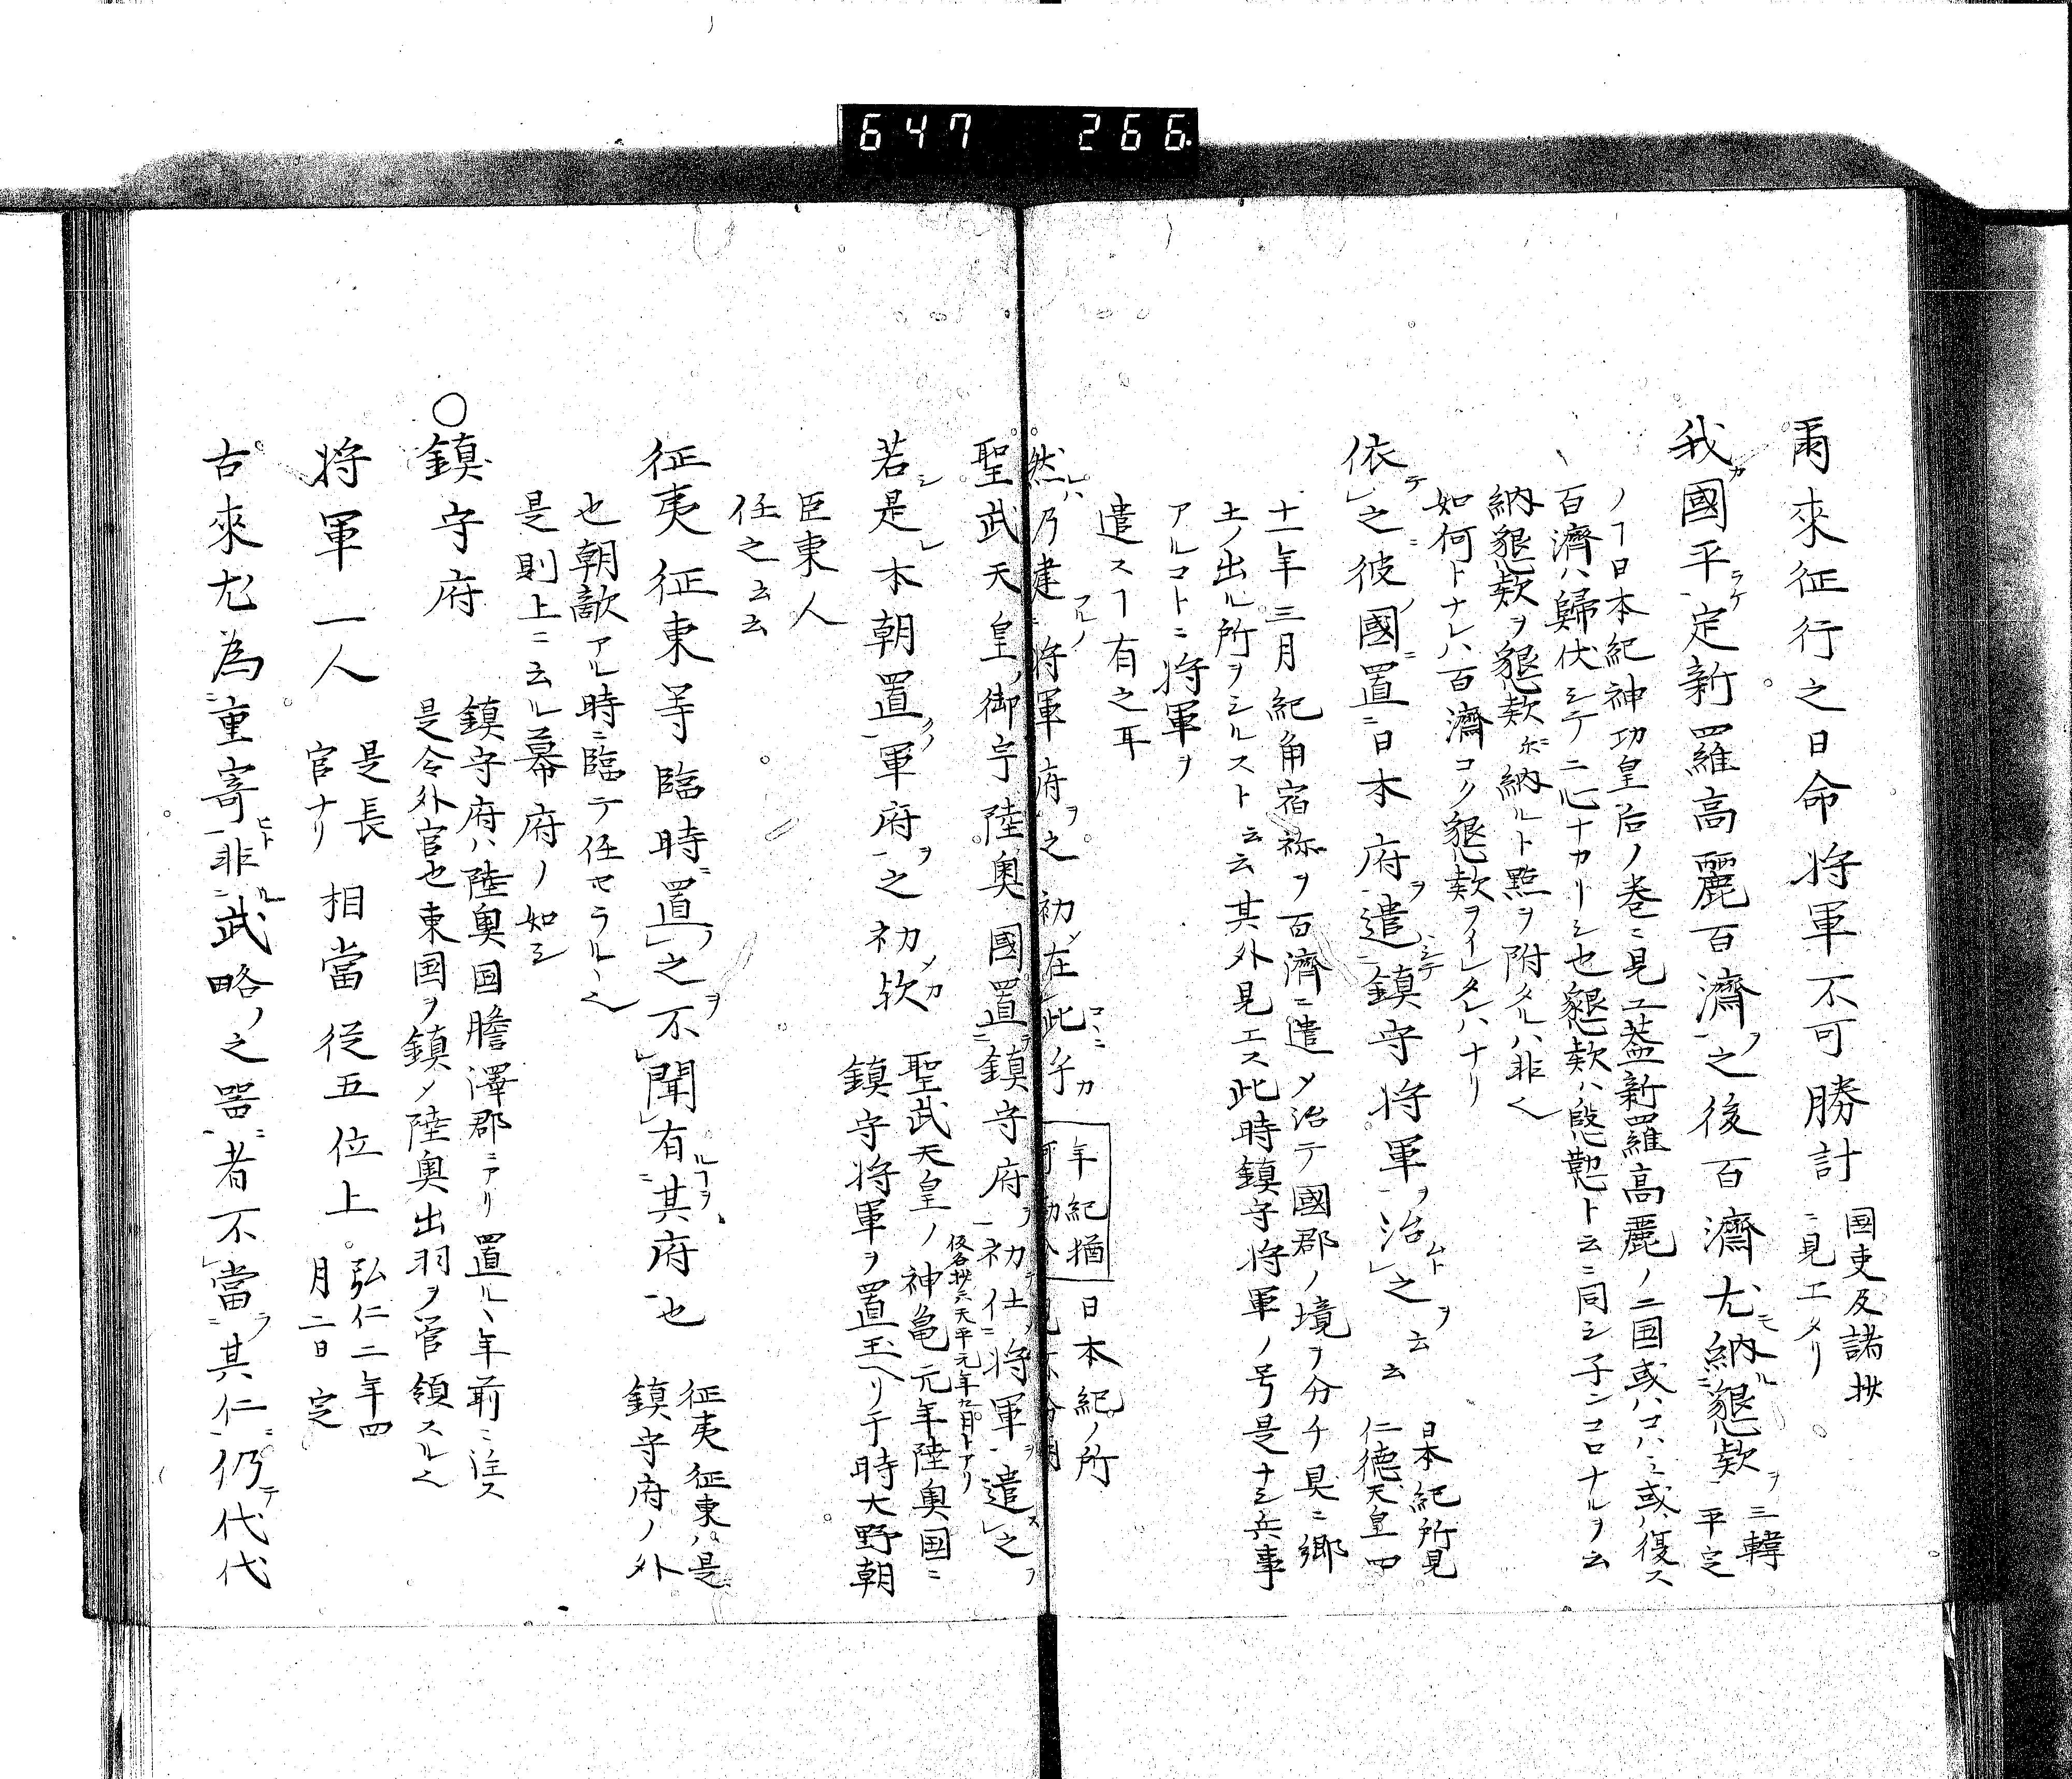 647 266
爾來征行之日命将軍不可勝計
国吏及諸抄
ニ見エタリ
我カ國平ラケ定新羅高麗百濟ノ之後百濟尤モ納ル懇欵ヲ
三韓
平定
ノヿ日本紀神功皇后ノ巻ニ見ユ蓋新羅高麗ノ二国或ハコハミ或ハ復ス
百濟ハ歸伏シテ二心ナカリーシ也懇欵ハ慇懃ト云ニ同シ子ンコロナルヲ云
納懇欵ヲ懇欵ニ納ルト點ヲ附タルハ非也
如何トナレハ百濟コク懇欵ヲイレタレハナリ
依テ之ニ彼ノ國ニ置ニ日本府ヲ遣シテ鎮守将軍ヲ治ムト之ヲ云云
日本紀所見
仁德天皇四
十一年三月紀角宿祢ヲ百濟ニ遣メ治テ國郡ノ境ヲ分チ具ニ郷
土ノ出ル所ヲシルスト云云其外見エス此時鎮守将軍ノ号是ナシ兵事
アルコトニ将軍ヲ
遣スヿ有之耳
然レハ乃建フルノ将軍府ヲ之初メ在此コヽニ乎カ
年紀猶
日本紀ノ所
聖武天皇ノ御宇陸奥國置ヲ鎮守府ヲ初テ仕ニ将軍ヲ遣ス之ヲ
若シ是レ本朝置クノ軍府ヲ之初メカ欤
聖武天皇ノ神亀元年陸奥国ニ
仮名抄云天平元年九月トアリ
鎮守将軍ヲ置玉ヘリ于時大野朝
臣東人
任之云云
征夷征東等臨時ニ置ク之ヲ不聞有ルヿヲ其府也
征夷征東ハ是
鎮守府ノ外
也朝敵アル時ニ臨テ任セラルヽ也
是則上ニ云ル幕府ノ如シ
○鎮守府
鎮守府ハ陸奥国膽澤郡ニアリ置ルヽ年前ニ注ス
是令外官也東国ヲ鎮メ陸奥出羽ヲ管領スル也
将軍一人
是長
官ナリ
相當従五位上
弘仁二年四
月二日定
古來尤為ニ重寄非ヒトルニ武略ノ之器ニ者不當ラ其仁ニ仍テ代代